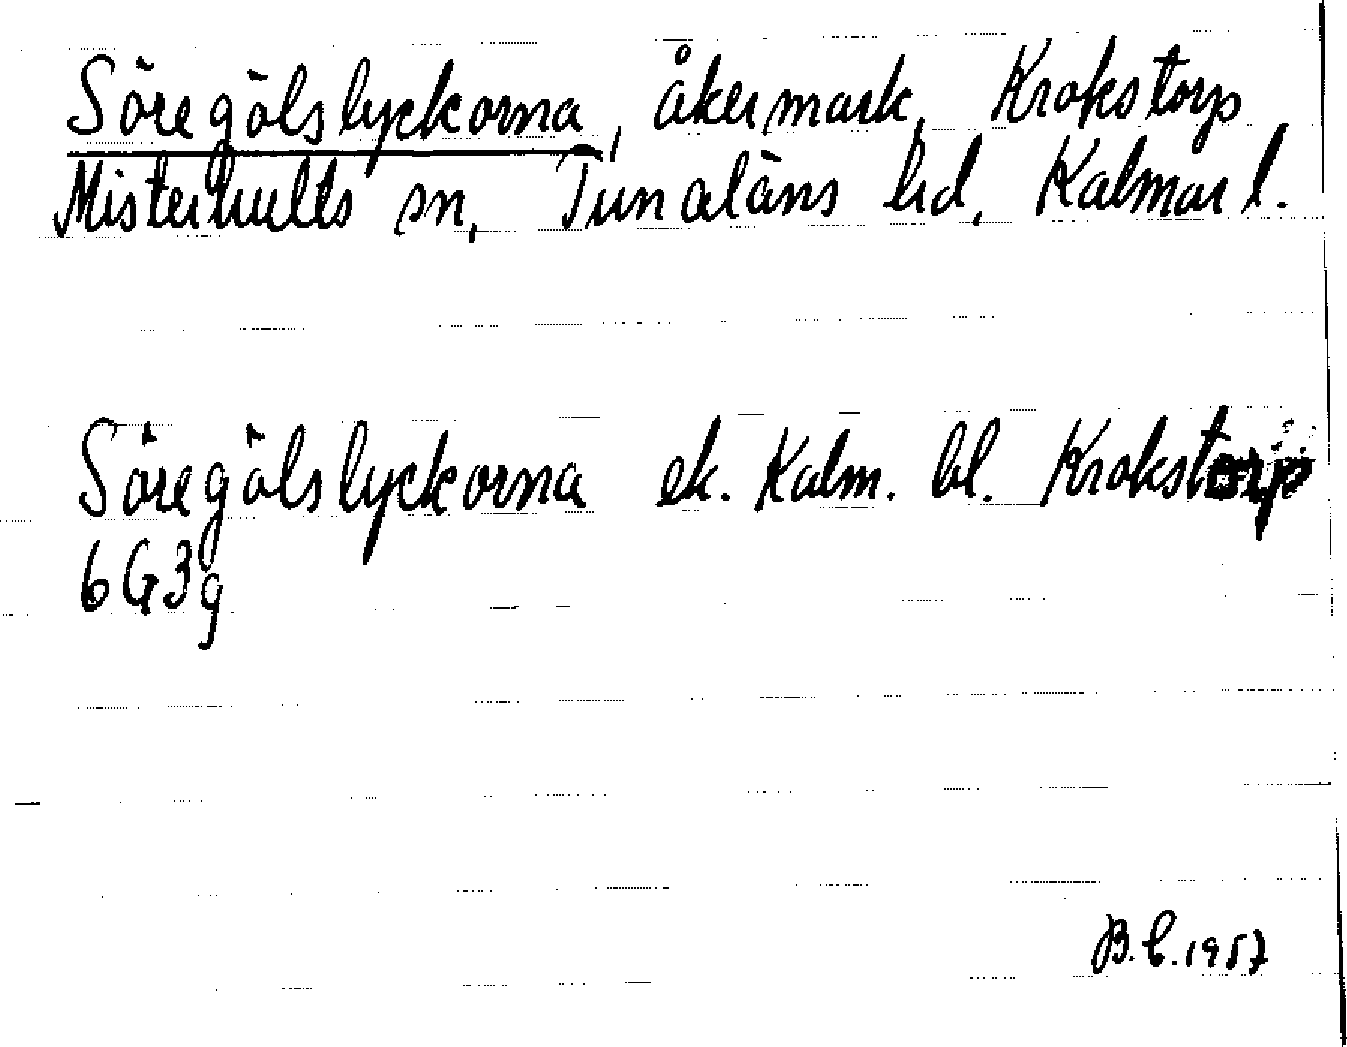 Söregölslyckorna, åkermark, Krokstorp
Misterhults sn, Tunaläns hd, Kalmar l.
Söregölslyckorna ek. Kalm. bl. Krokstorp
6G3g
B.C.1957